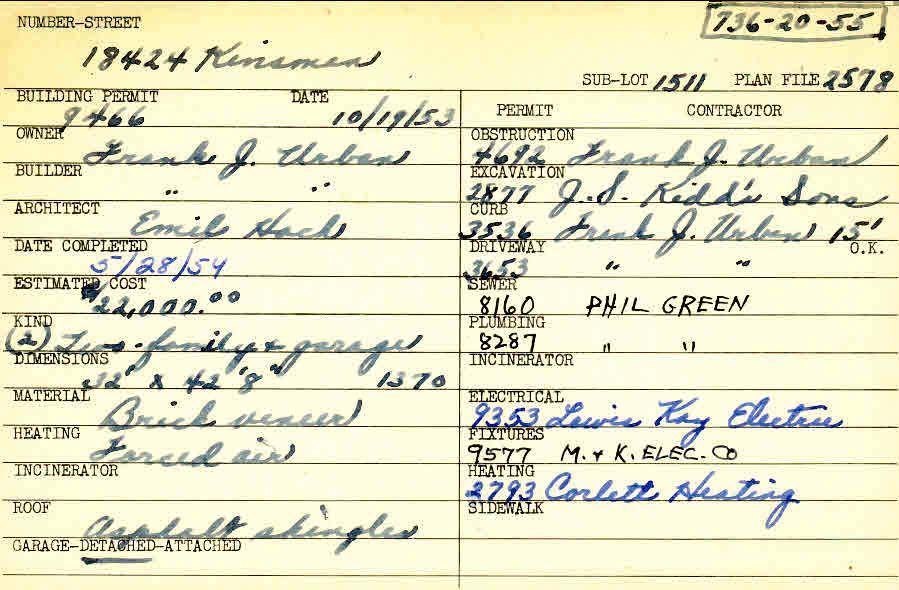 NUMBER-STREET
736-20-55
18424 Kinsman
SUB-LOT 1511 PLAN FILE 2578
BUILDING PERMIT DATE
9466 10/19/53
OWNER Frank J. Urban
BUILDER " "
ARCHITECT Emil Hach
DATE COMPLETED
5/28/54
ESTIMATED COST
$22,000.00
KIND
(2) Two-family & garage
DIMENSIONS
32' x 42'8" 1370
MATERIAL Brick veneer
HEATING Forced air
INCINERATOR
ROOF Asphalt shingles
GARAGE-DETACHED-ATTACHED
PERMIT CONTRACTOR
OBSTRUCTION
4692 Frank J. Urban
EXCAVATION
2877 J. S. Kidd's Sons
CURB
3536 Frank J. Urban 15'
DRIVEWAY O.K.
3653 " "
SEWER
8160 PHIL GREEN
PLUMBING
8287 " "
INCINERATOR
ELECTRICAL
9353 Lewis Kay Electric
FIXTURES
9577 M. & K. ELEC. CO
HEATING
2793 Corlett Heating
SIDEWALK